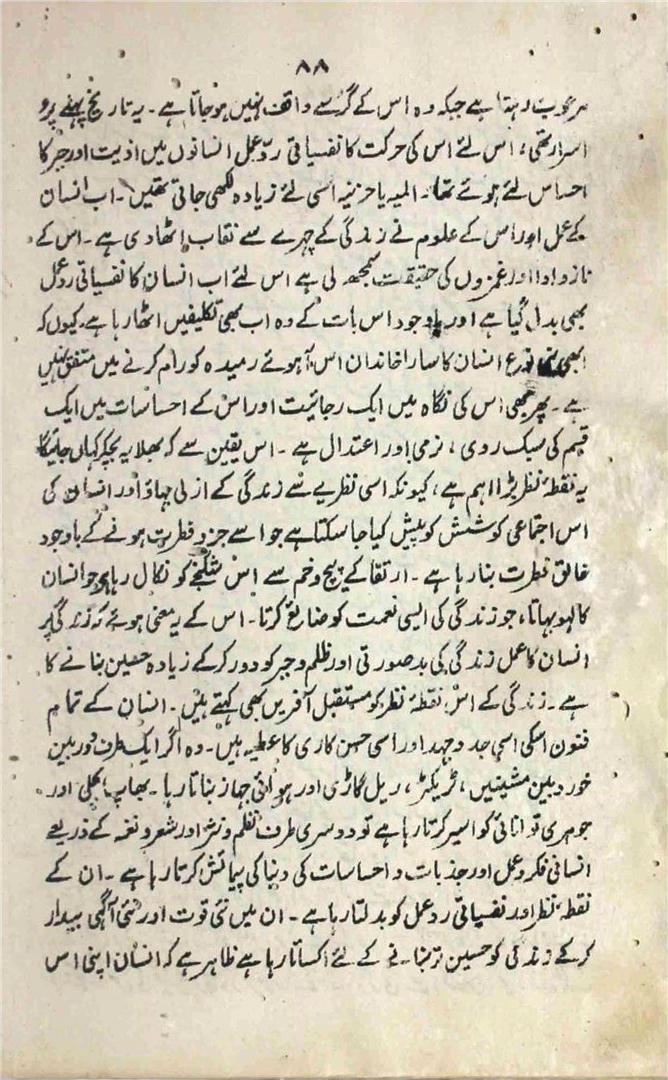 ۸۸
مرعوب رہتا ہے جبکہ وہ اس کے گُر سے واقف نہیں ہو جاتا ہے۔ یہ تاریخ پہلے پر و
اسرار تھی، اس لئے اس کی حرکت کا نفسیاتی ردِّ عمل انسانوں میں اذیت اور جبر کا
احساس لئے ہوئے تھا۔ المیہ یا حزنیہ اسی لئے زیادہ لکھی جاتی تھیں۔ اب انسان
کے عمل اور اس کے علوم نے زندگی کے چہرے سے نقاب اٹھا دی ہے۔ اس کے
ناز و ادا اور غمزوں کی حقیقت سمجھ لی ہے اس لئے اب انسان کا نفسیاتی ردعمل
بھی بدل گیا ہے اور باوجود اس بات کے وہ اب بھی تکلیفیں اٹھا رہا ہے۔ کیوں کہ
ابھی بنی نوع انسان کا سارا خاندان اس آہوئے رمیدہ کو رام کرنے میں متفق نہیں
ہے۔ پھر بھی اس کی نگاہ میں ایک رجائیت اور اس کے احساسات میں ایک
قسم کی سبک روی، نرمی اور اعتدال ہے۔ اس یقین سے کہ بھلا یہ بچکر کہاں جائیگا
یہ نقطۂ نظر بڑا اہم ہے، کیونکہ اسی نظریے سے زندگی کے ازلی بہاؤ اور انسان کی
اس اجتماعی کوشش کو پیش کیا جا سکتا ہے جو اسے جزو فطرت ہونے کے باوجود
خالق فطرت بنا رہا ہے۔ ارتقا کے پیچ و خم سے اس شکنجے کو نکال رہا ہے جو انسان
کا لہو بہاتا، جو زندگی کی ایسی نعمت کو ضائع کرتا۔ اس کے یہ معنی ہوئے کہ زندگی پر
انسان کا عمل زندگی کی بدصورتی اور ظلم و جبر کو دور کر کے زیادہ حسین بنانے کا
ہے۔ زندگی کے اس نقطۂ نظر کو مستقبل آفریں بھی کہتے ہیں۔ انسان کے تمام
فنون اسکی اسی جد و جہد اور اسی حسن کاری کا عطیہ ہیں۔ وہ اگر ایک طرف دوربین
خوردبین مشینیں، ٹریکٹر، ریل گاڑی اور ہوائی جہاز بناتا رہا۔ بھاپ بجلی اور
جوہری توانائی کو اسیر کرتا رہا ہے تو دوسری طرف نظم و نثر اور شعر و نغمہ کے ذریعے
انسانی فکر و عمل اور جذبات و احساسات کی دنیا کی پیمائش کرتا رہا ہے۔ ان کے
نقطۂ نظر اور نفسیاتی ردعمل کو بدلتا رہا ہے۔ ان میں نئی قوت اور نئی آگہی بیدار
کر کے زندگی کو حسین تر بنانے کے لئے اکساتا رہا ہے ظاہر ہے کہ انسان اپنی اس